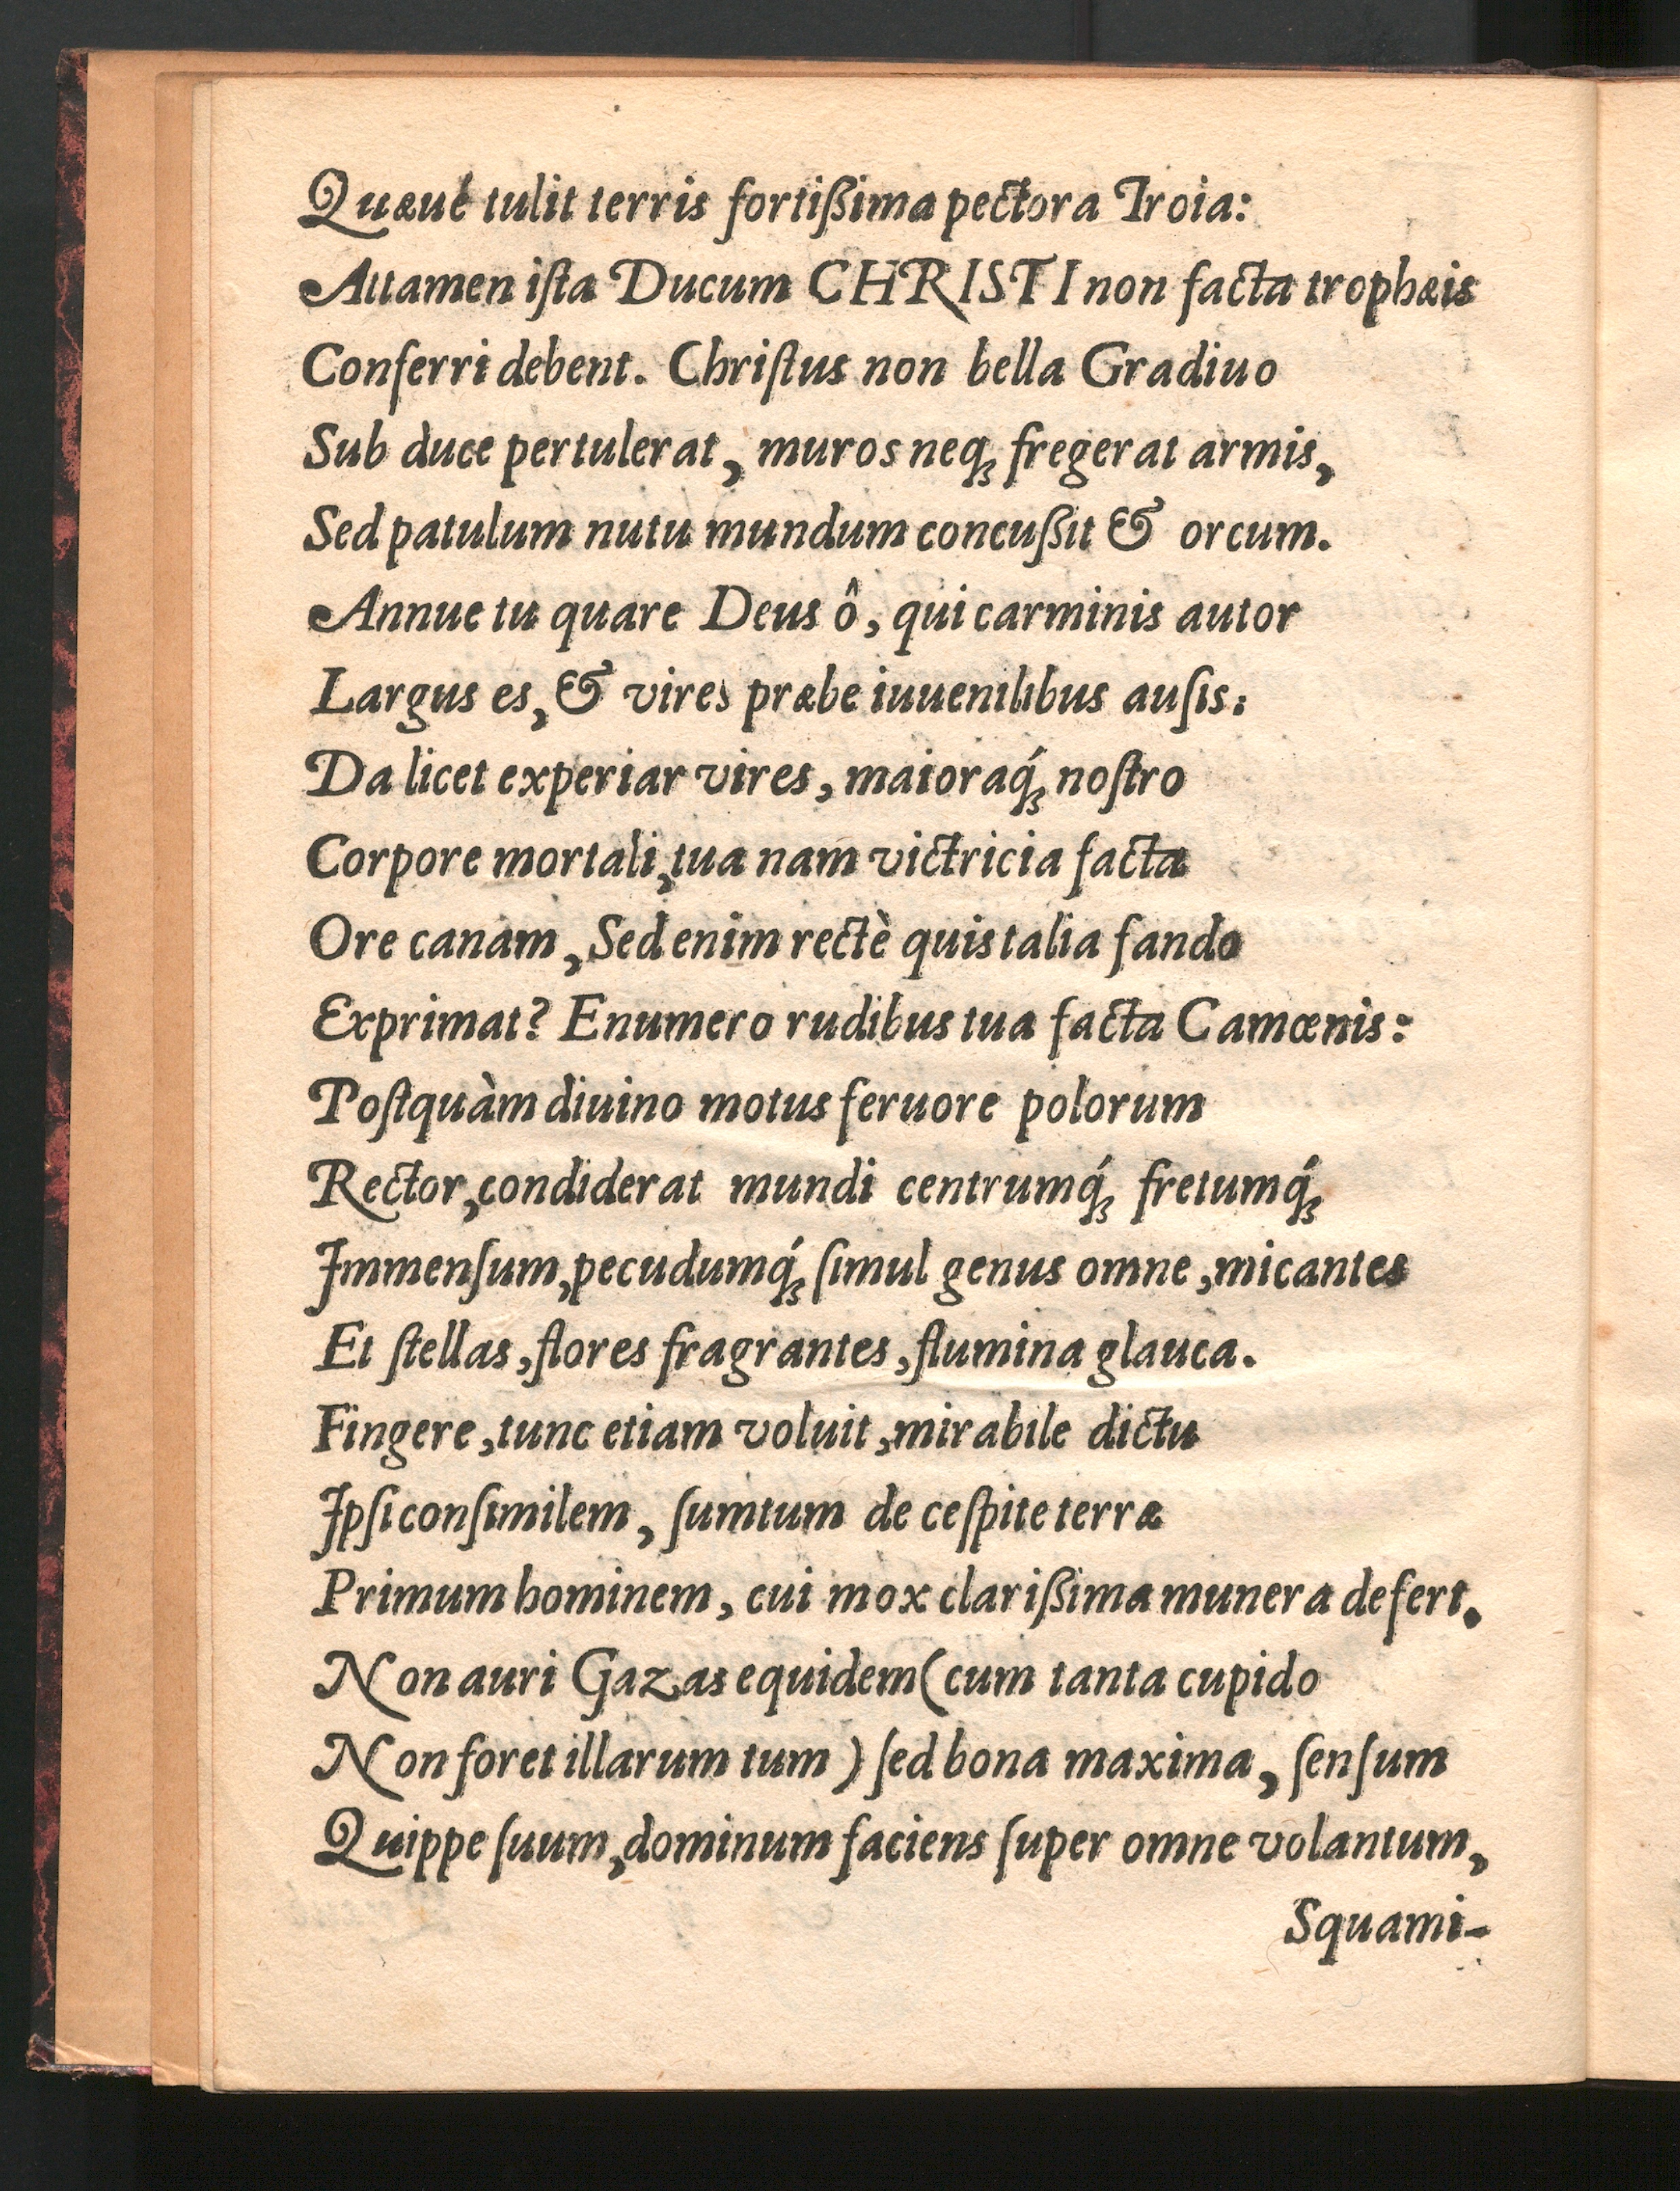 Quæué tulit terris fortißima pectora Troia:
Attamen iſta Ducum CHRISTI non facta trophæis
Conferri debent. Chriſtus non bella Gradiuo
Sub duce pertulerat, muros neq́; fregerat armis,
Sed patulum nutu mundum concußit & orcum.
Annue tu quare Deus ô, qui carminis autor
Largus es, & vires præbe iuuenilibus auſis:
Da licet experiar vires, maioraq́; noſtro
Corpore mortali, tua nam victricia facta
Ore canam, Sed enim rectè quis talia fando
Exprimat? Enumero rudibus tua facta Camœnis:
Poſtquàm diuino motus feruore polorum
Rector, condiderat mundi centrumq́; fretumq́;
Immenſum, pecudumq́; ſimul genus omne, micantes
Et ſtellas, flores fragrantes, flumina glauca.
Fingere, tunc etiam voluit, mirabile dictu
Ipſi conſimilem, ſumtum de ceſpite terræ
Primum hominem, cui mox clarißima munera defert.
Non auri Gazas equidem (cum tanta cupido
Non foret illarum tum) ſed bona maxima, ſenſum
Quippe ſuum, dominum faciens ſuper omne volantum,
Squami-